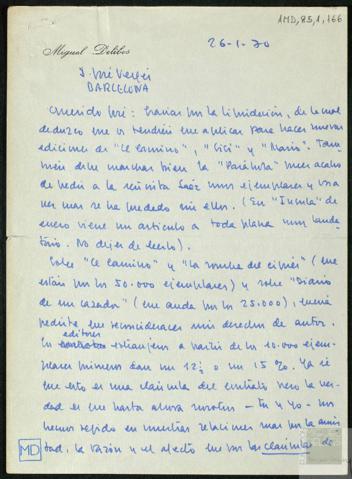 AMD, 85, 1, 166
Miguel Delibes
26-1-70
D. José Vergés
BARCELONA
Querido José: Gracias por la liquidación, de la cual
deduzco que os tendréis que aplicar para hacer nuevas
ediciones de "El Camino", "Sisí" y "Mario". Tam-
bién debe marchar bien la "Parábola" pues acabo
de pedir a la señorita Sáez unos ejemplares y
se ha quedado sin ellos. (En "Insula" de
enero viene un artículo a toda plana muy lauda-
torio. No dejes de leerlo).
Sobre "El Camino" y "La sombra del ciprés" (que
están por los 50.000 ejemplares) y sobre "Diario
de un cazador" (que anda por los 25.000), quería
pedirte que reconsiderases mis derechos de autor.
Los editores extranjeros a partir de los 10.000 ejem-
plares primeros dan un 12½ o un 15%. Ya sé
que esto es una cláusula del contrato pero la ver-
dad es que hasta ahora nosotros - tú y yo - nos
hemos regido en nuestras relaciones más por la amis-
tad, la razón y el afecto que por las cláusulas de
MD